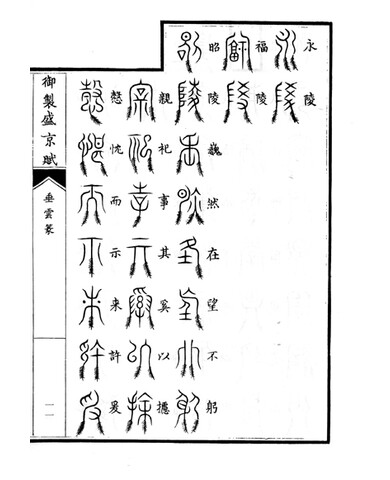 永陵
福陵
昭陵巍然在望不躬
親祀事其奚以攄
慤忱而示來許爰
御製盛京賦
垂雲篆